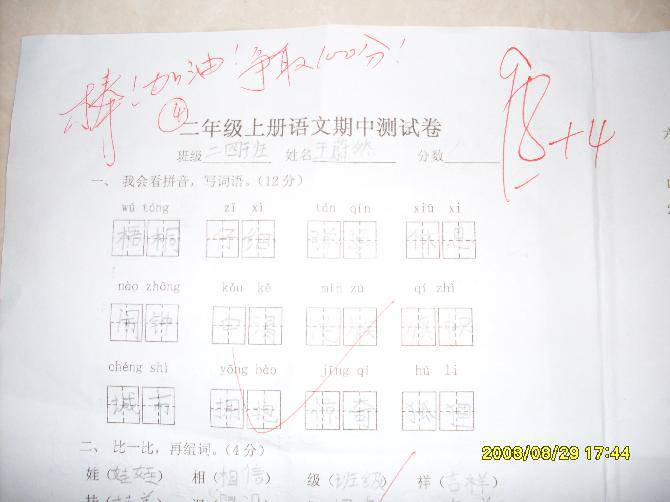 棒！加油！争取100分！
④
98+4
二年级上册语文期中测试卷
班级 二四班 姓名 王蔚然 分数
一、我会看拼音，写词语。(12分)
wú tóng zǐ xì tán qín xiū xi
梧桐 仔细 弹琴 休息
nào zhōng kǒu kě mín zú qí zhǐ
闹钟 口渴 民族
chéng shì yōng bào jīng qí hú li
城市 拥抱 惊奇 狐狸
二、比一比，再组词。(4分)
娃（娃娃） 相（相信） 级（班级） 样（吉样）
2008/08/29 17:44